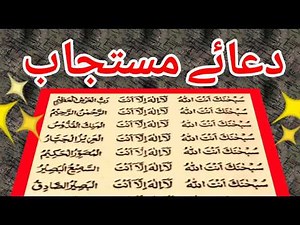 دعائے مستجاب
سُبْحٰنَكَ اَنْتَ اللّٰهُ لَآ اِلٰهَ اِلَّا اَنْتَ رَبُّ الْعَرْشِ الْعَظِيْمِ
سُبْحٰنَكَ اَنْتَ اللّٰهُ لَآ اِلٰهَ اِلَّا اَنْتَ الرَّحْمٰنُ الرَّحِيْمُ
سُبْحٰنَكَ اَنْتَ اللّٰهُ لَآ اِلٰهَ اِلَّا اَنْتَ الْمَلِكُ الْقُدُّوْسُ
سُبْحٰنَكَ اَنْتَ اللّٰهُ لَآ اِلٰهَ اِلَّا اَنْتَ الْعَزِيْزُ الْجَبَّارُ
سُبْحٰنَكَ اَنْتَ اللّٰهُ لَآ اِلٰهَ اِلَّا اَنْتَ الْحَكِيْمُ
سُبْحٰنَكَ اَنْتَ اللّٰهُ لَآ اِلٰهَ اِلَّا اَنْتَ السَّمِيْعُ الْبَصِيْرُ
سُبْحٰنَكَ اَنْتَ اللّٰهُ لَآ اِلٰهَ اِلَّا اَنْتَ الْبَصِيْرُ الصَّادِقُ